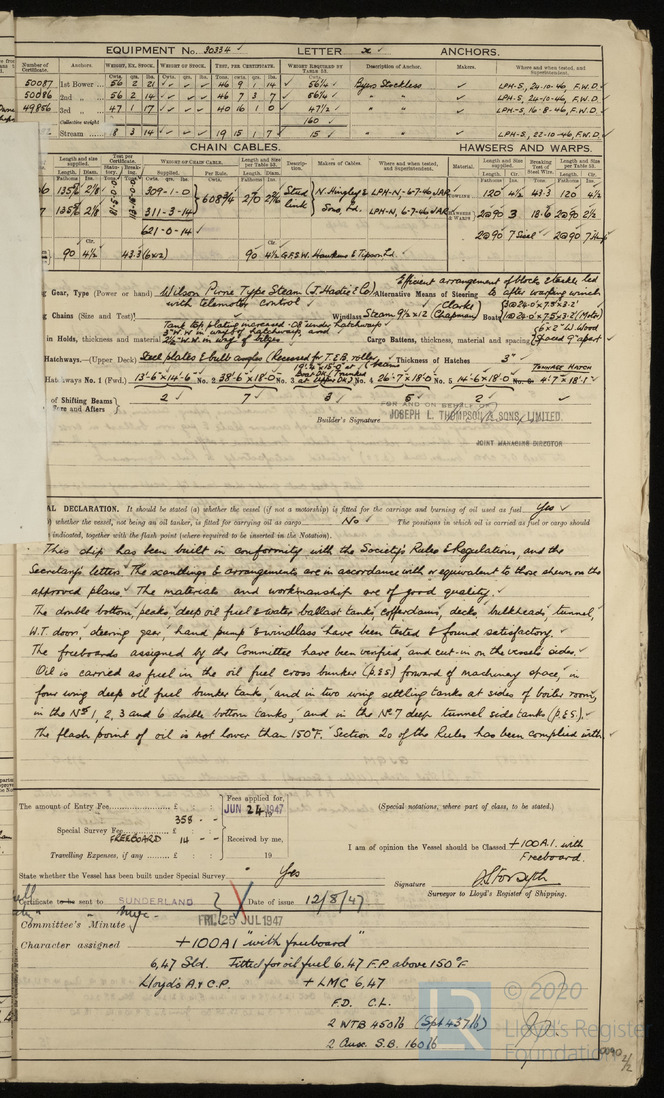 EQUIPMENT No. 30334 ✓ LETTER x ✓ ANCHORS.
Number of Certificate. Anchors. WEIGHT, EX. STOCK. WEIGHT OF STOCK. TEST, PER CERTIFICATE. WEIGHT REQUIRED BY TABLE 53. Description of Anchor. Makers. Where and when tested, and Superintendent.
50087 1st Bower 56 2 21 46 9 1 14 ✓ 56¼ ✓ Byers Stockless ✓ LPH-S, 24-10-46, F.W.D.
50086 2nd „ 56 2 14 46 7 3 7 ✓ 56¼ ✓ LPH-S, 24-10-46, F.W.D.
49856 3rd „ 47 1 17 40 16 1 0 ✓ 47½ ✓ LPH-S, 16-8-46, F.W.D.
Collective weight 160 ✓
Stream 8 3 14 19 15 1 7 ✓ 15 ✓ LPH-S, 22-10-46, F.W.D.
CHAIN CABLES. HAWSERS AND WARPS.
Length and size supplied. Test per Certificate. WEIGHT OF CHAIN CABLE. Length and Size Per Table 53. Description. Makers of Cables. Where and when tested, and Superintendent. Material. Length and Size supplied. Breaking Test of Steel Wire. Length and Size Per Table 53.
Length. Diam. Supplied. Per Rule. Length. Diam.
135½ 2⅛ 309-1-0 608¾ 270 Stud link N. Hingley & Sons, Ld. LPH-N, 6-7-46, JAR 120 4½ 43.3 120 4½
135½ 2⅛ 311-3-14 LPH-N, 6-7-46, JAR HAWSERS & WARPS 2@90 3 18.6 2@90 2½
621-0-14 ✓ 2@90 7 Sisal ✓ 2@90 7
90 4½ 43.3 (6x12) 90 4½ G.F.S.W. Hawkins & Tipson Ld.
Gear, Type (Power or hand) Wilson Pirrie Type Steam (J. Hastie & Co) with telemotor control ✓ Alternative Means of Steering Efficient arrangement of blocks & tackle led to after warping winch
Chains (Size and Test) Windlass Steam 9½ x 12 (Clarke Chapman) Boats
in Holds, thickness and material Tank top plating increased .08 under hatchways 3" W.W. in way of hatchways, and 2½" W.W. in way of bilges. Cargo Battens, thickness, material and spacing 6 x 2" W. Wood Spaced 9" apart
Hatchways.—(Upper Deck) Steel plates & bulb angles (Recessed for T.E.B. rolling beams) Thickness of Hatches 3" ✓ TONNAGE HATCH
Hatchways No. 1 (Fwd.) 13'-6" x 14'-6" No. 2 38'-6" x 18'-0" No. 3 No. 4 26'-7" x 18'-0" No. 5 14'-6" x 18'-0" No. 6 4'-7" x 18'-1"
of Shifting Beams and Fore and Afters 2 ✓ 7 ✓ 3 ✓ 5 ✓ 2 ✓ ✓
FOR AND ON BEHALF OF
Builder's Signature JOSEPH L. THOMPSON & SONS, LIMITED.
JOINT MANAGING DIRECTOR
AL DECLARATION. It should be stated (a) whether the vessel (if not a motorship) is fitted for the carriage and burning of oil used as fuel Yes ✓
) whether the vessel, not being an oil tanker, is fitted for carrying oil as cargo No ✓ The positions in which oil is carried as fuel or cargo should
indicated, together with the flash point (where required to be inserted in the Notation).
This ship has been built in conformity with the Society's Rules & Regulations, and the
Secretary's letters. The scantlings & arrangements are in accordance with or equivalent to those shewn on the
approved plans. The materials and workmanship are of good quality.
The double bottom, peaks, deep oil fuel & water ballast tanks, cofferdams, decks, bulkheads, tunnel,
W.T. doors, steering gear, hand pump & windlass have been tested & found satisfactory.
The freeboards assigned by the Committee have been verified, and cut-in on the vessel's sides.
Oil is carried as fuel in the oil fuel cross bunker (p.&s.) forward of machinery space, in
four wing deep oil fuel bunker tanks, and in two wing settling tanks at sides of boiler room,
in the Nos 1, 2, 3 and 6 double bottom tanks, and in the No 7 deep tunnel side tanks (p.&s.).
The flash point of oil is not lower than 150°F. Section 20 of the Rules has been complied with.
The amount of Entry Fee £ Fees applied for, JUN 24 1947 (Special notations, where part of class, to be stated.)
Special Survey Fee £ 358 - -
FREEBOARD 14 - - Received by me, I am of opinion the Vessel should be Classed +100A1. with Freeboard.
Travelling Expenses, if any £ 19
State whether the Vessel has been built under Special Survey Yes
Signature
Surveyor to Lloyd's Register of Shipping.
Certificate to be sent to SUNDERLAND Date of issue 12/8/47
Committee's Minute FRI. 25 JUL 1947
Character assigned +100A1 "with freeboard"
6,47 Sld. Fitted for oil fuel 6,47 F.P. above 150°F
Lloyd's A & C.P. + LMC 6,47
F.D. C.L.
2 WTB 450 lb (Spt 437 lb)
2 Aux. S.B. 160 lb
© 2020
Lloyd's Register
Foundation
LR
0090 2/2